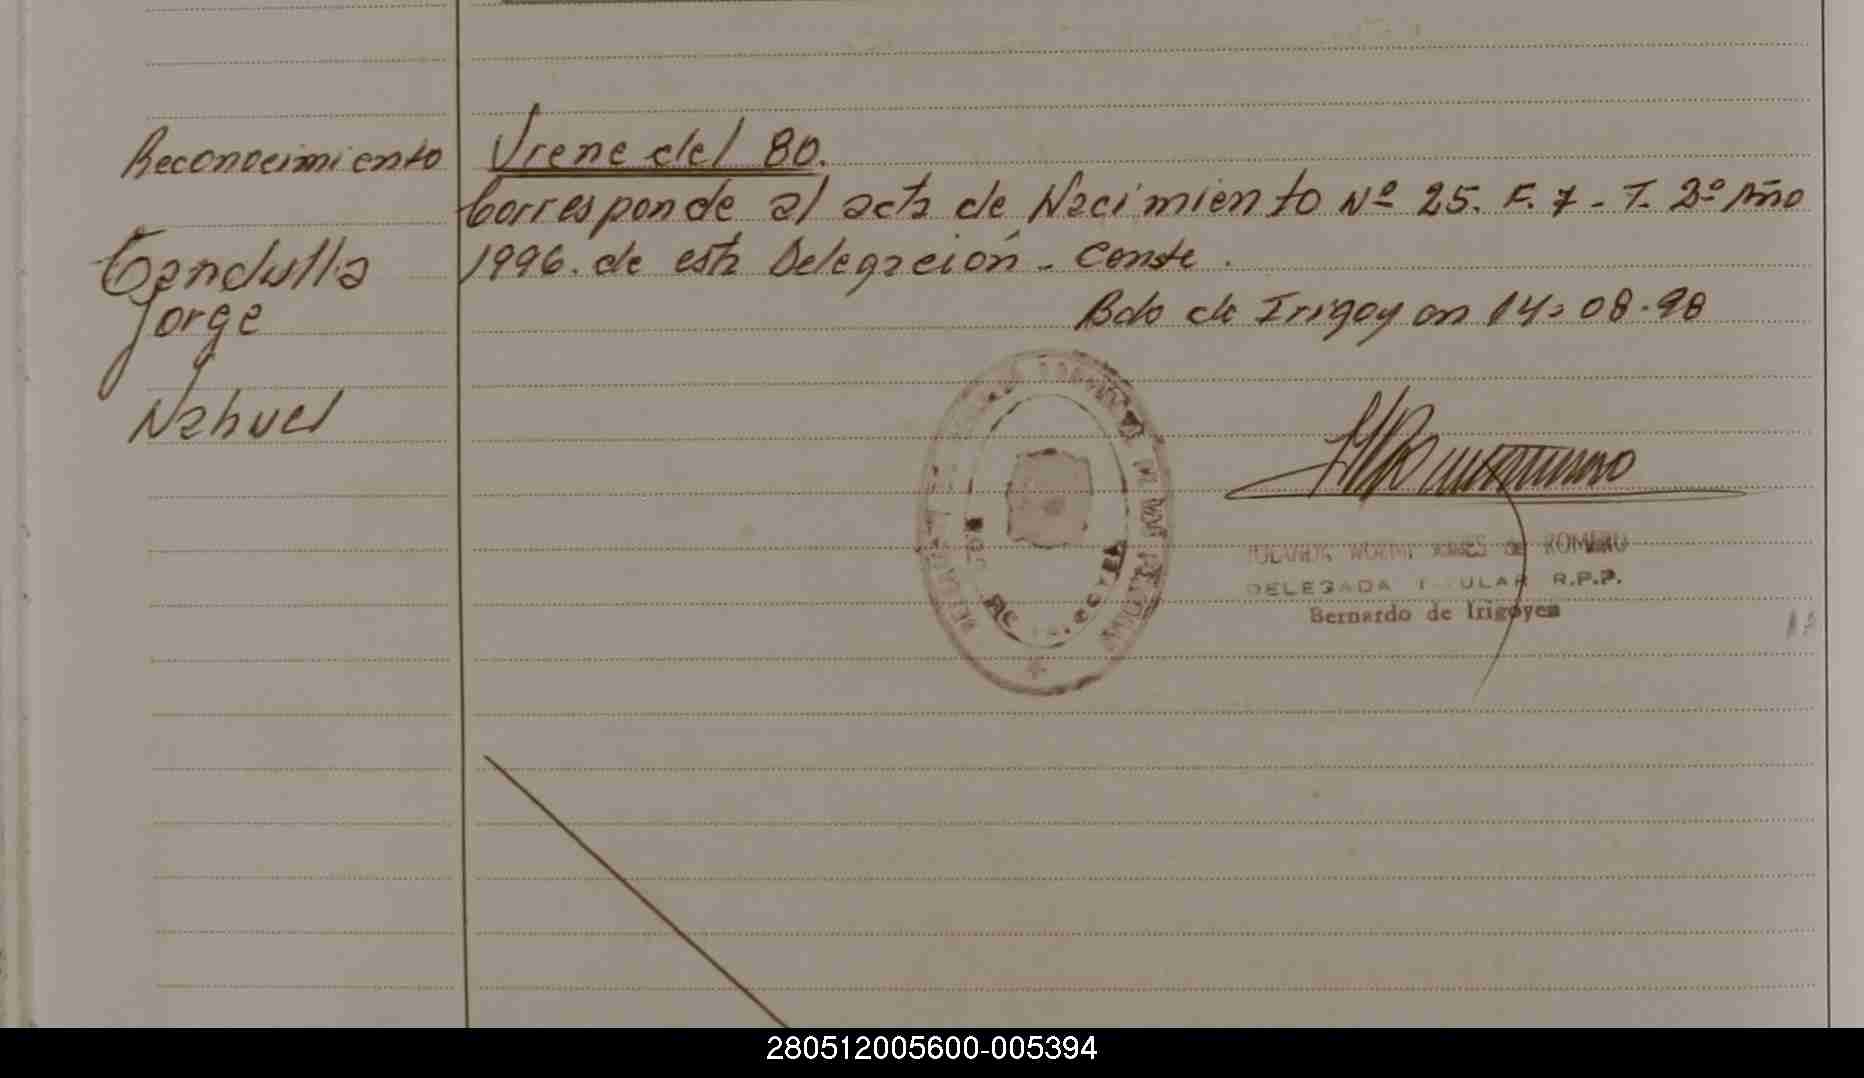 Reconocimiento
Candulla
Jorge
Nahuel
Viene del 80.
Corresponde al acta de Nacimiento Nº 25. F. 7 - T. 2º Año
1996. de esta Delegación - Conste.
Bdo de Irigoyen 14-08-98
DELEGADA TITULAR R.P.P.
Bernardo de Irigoyen
280512005600-005394